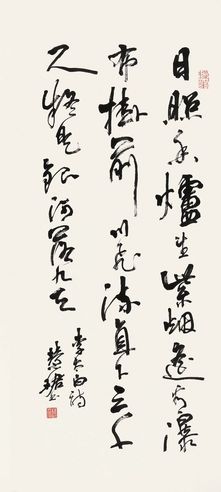 日照香爐生紫烟遙看瀑
布掛前川飛流直下三千
尺疑是銀河落九天
李太白詩
慧珺书